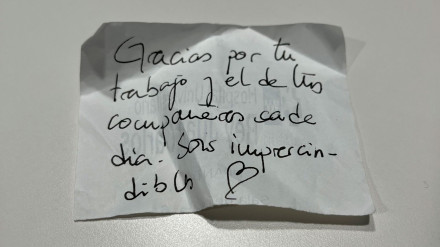 Gracias por tu
trabajo y el de tus
compañeros cada
día. Sois imprescin-
dibles